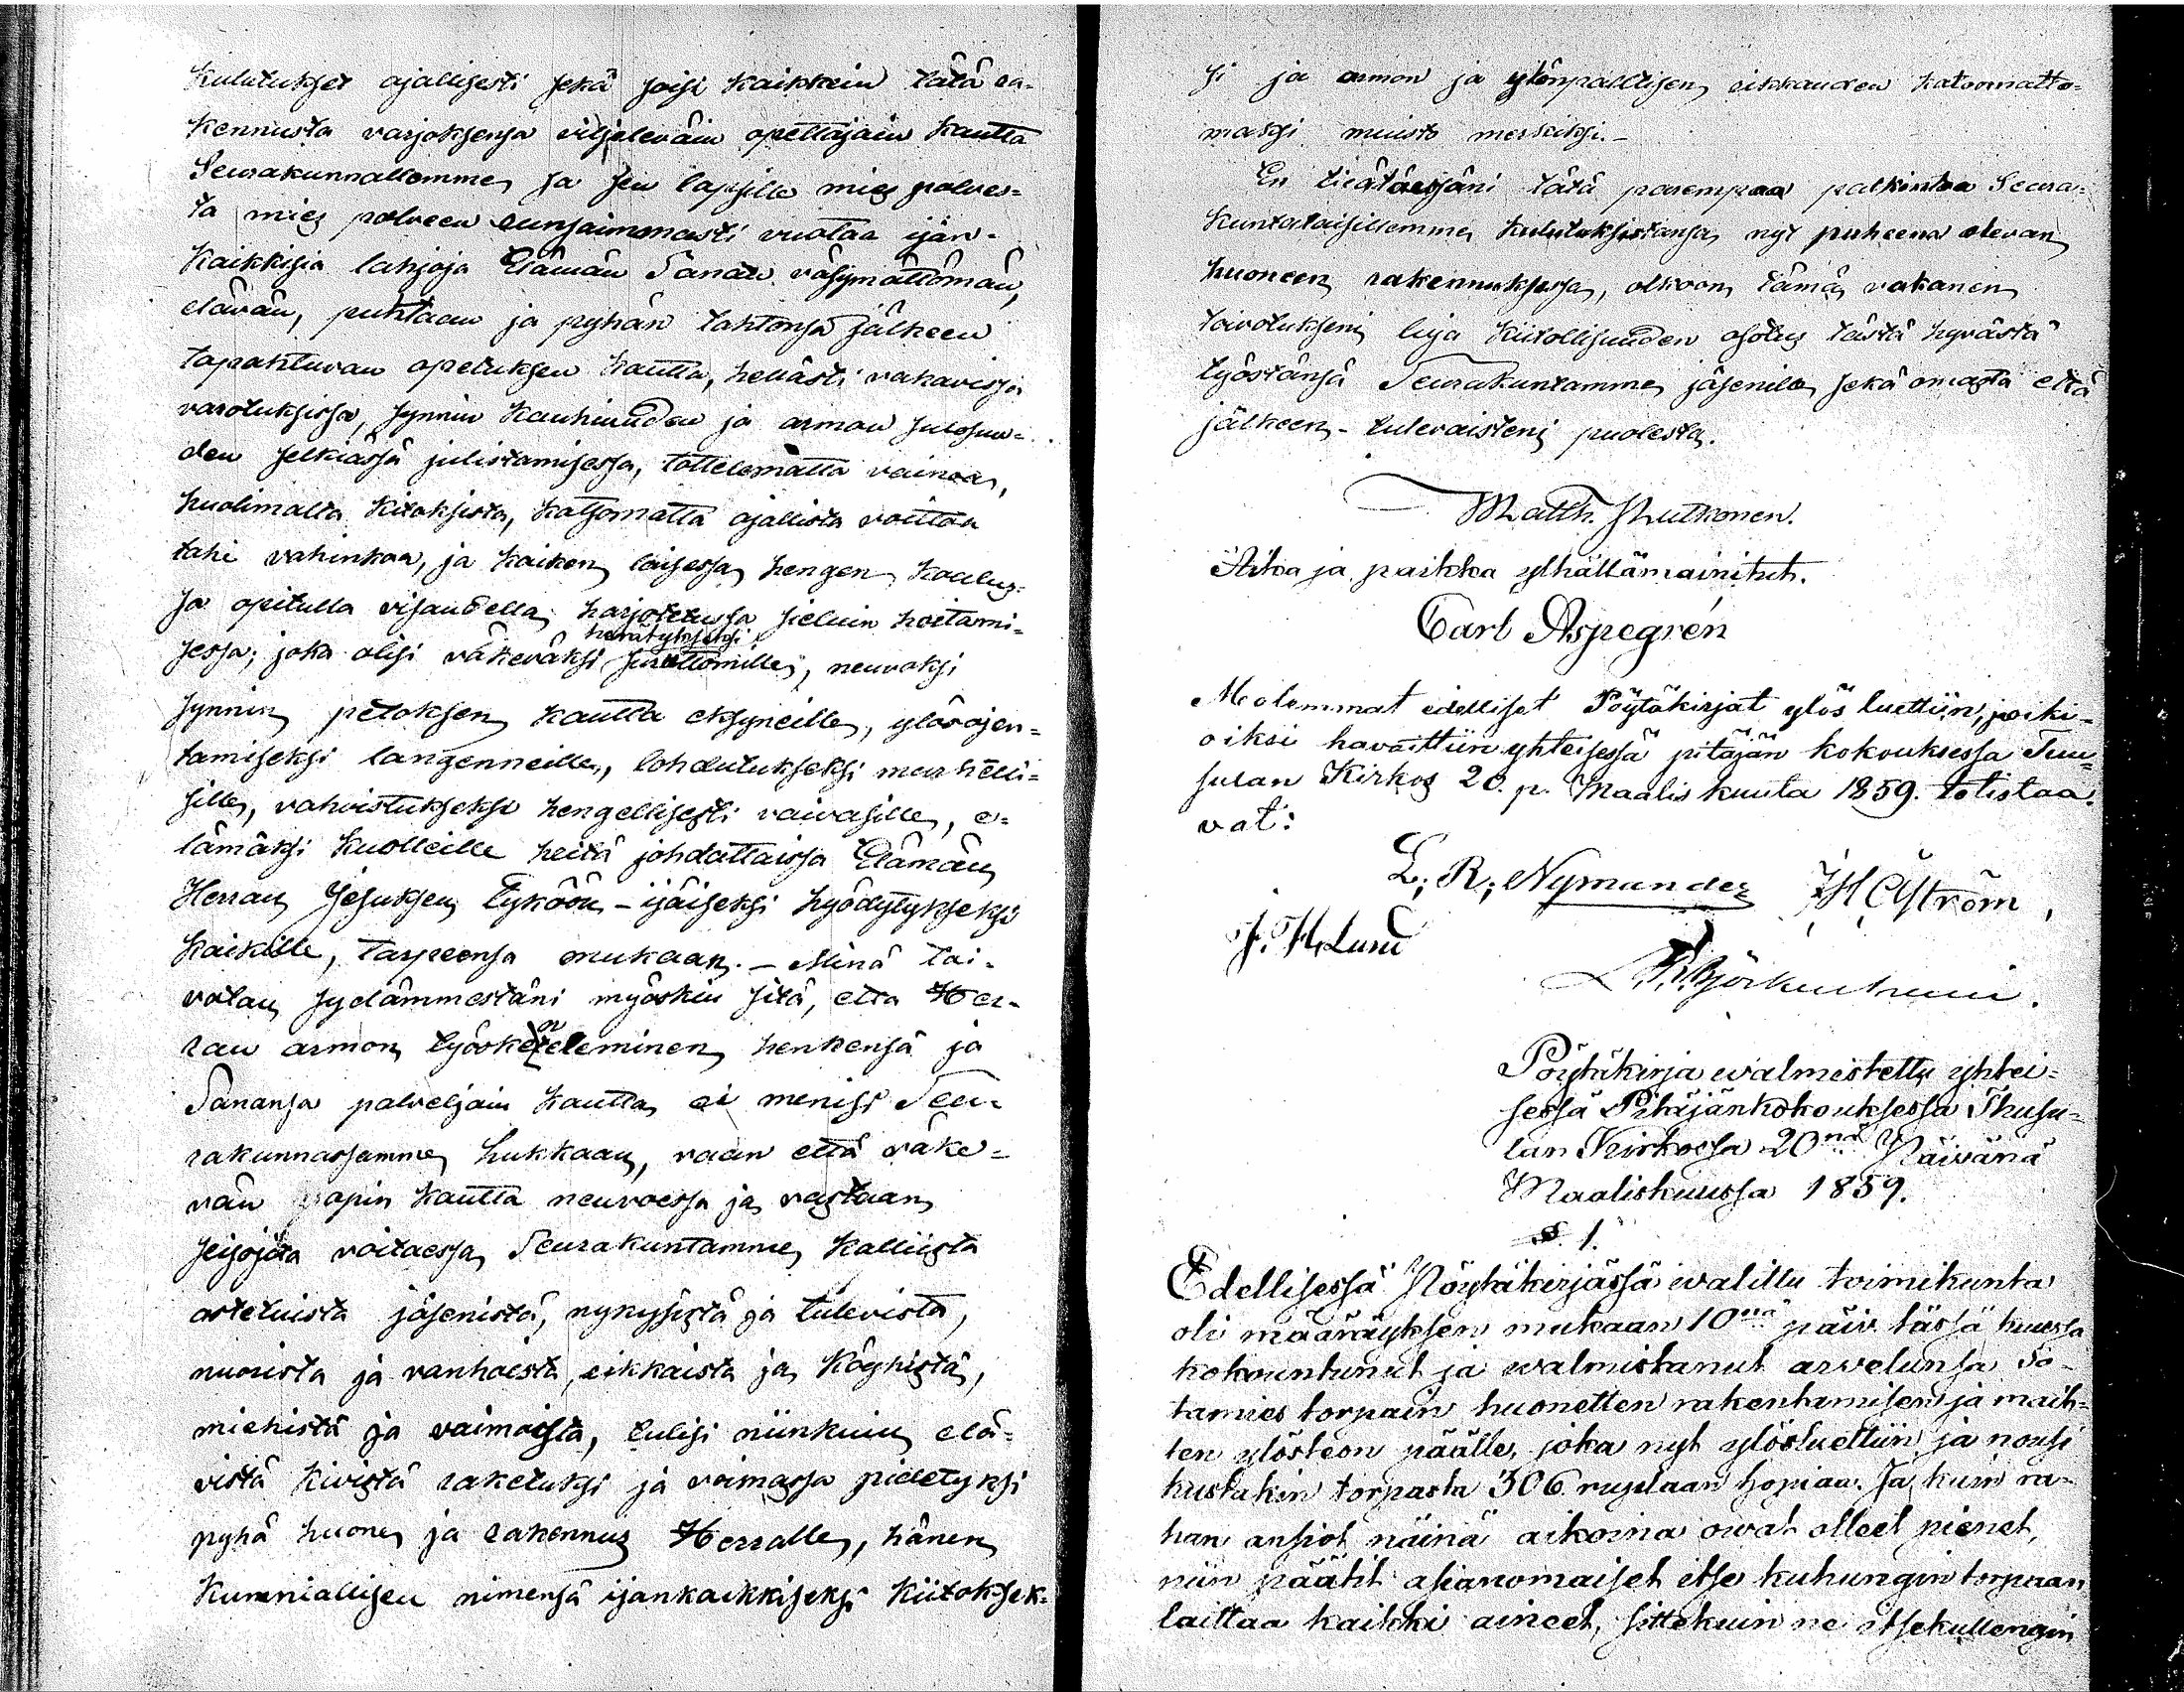 kulutukset ajallisesti sekä soisi kaikkein tätä ra-
kennusta varjoksensa viljeleväin opettajain kautta
Seurakunnallemme ja sen lapsille mies polves-
ta mies polveen runsaimmasti vuotaa ijän-
kaikkisia lahjoja Elämän Sanan väsymättömän,
elävän, puhtaan ja pyhän tahtonsa jälkeen
tapahtuvan opetuksen kautta, hellästi vakavissa
varotuksissa, synnin kauhiuuden ja armon suloisuu-
den selkiässä julistamisessa, tottelematta vainoa,
huolimatta kitoksista, katsomatta ajallista voittoa
tahi vahinkoa, ja kaiken laisessa hengen koetus-
ja opitulla visaudella harjotetussa sieluin hoitami-
sessa; joka olisi väkeväksi herätykseksi suruttomille, neuvoksi
synnin petoksen kautta eksyneille, ylösojen-
tamiseksi langenneille, lohdutukseksi murhelli-
sille, vahvistukseksi hengellisesti vaivasille, e-
lämäksi kuolleille heitä johdattaissa Elämän
Herran Jesuksen tyköön - ijäiseksi hyödytykseksi
kaikille, tarpeensa mukaan. - Minä toi-
votan sydämmestäni myöskin sitä, että Her-
ran armon työskenteleminen henkensä ja
Sanansa palveljain kautta ei menisi Seu-
rakunnassamme hukkaan, vaan että väke-
vän opin kautta neuvoessa ja vastaan
seisojita voitaessa Seurakuntamme kalliista
ostetuista jäsenistä, nykysistä ja tulevista,
nuorista ja vanhoista, rikkaista ja köyhistä,
miehistä ja vaimoista, tulisi niinkuin elä-
vistä kivistä raketuksi ja voimassa pidetyksi
pyhä huone ja rakennus Herralle, hänen
kunniallisen nimensä ijankaikkiseksi kiitoksek-
si ja armon ja ylönpalttisen rikkauden katoomatto-
maksi muisto merkiksi. -
En tieätäessäni tätä parempaa palkintoa Seura-
kuntalaisillemme kulutuksistansa nyt puheena olevan
huoneen rakennuksessa, olkoon tämä vakanen
toivotukseni luja kiitollisuuden osotus tästä hyvästä
työstänsä Seurakuntamme jäsenille sekä omasta että
jälkeen-tulevaisteni puolesta.
Matth. Hutkonen.
Aika ja paikka ylhällämainitut.
Carl Aspegrén
Molemmat edelliset Pöytäkirjat ylös luettiin, ja oiki-
oiksi havaittiin yhteisessä pitäjän kokouksessa Tuu-
sulan Kirkos 20. p. Maalis kuuta 1859. totistaa-
vat:
L; R; Nymander J H Åström,
J. H. Lund
Pöytäkirja walmistettu yhtei-
sessä Pitäjänkokouksessa Thusu-
lan Kirkossa 20nä Päivänä
Maaliskuussa 1859.
§ 1.
Edellisessä Pöytäkirjassä walittu toimikunta
oli määräyksen mukaan 10nä päiv tässä kuussa
kokountunut ja walmistanut arwelunsa So-
tamies torpain huonetten rakentamisen ja mait-
ten ylösteon päälle, joka nyt ylösluettiin ja nousi
kustakin torpasta 306 ruplaan hopiaa. Ja kuin ra-
han ansiot näinä aikoina owat olleet pienet,
niin päätit asianomaiset itse kuhungin torpaan
laittaa kaikki aineet, sittekuin ne itsekullengin